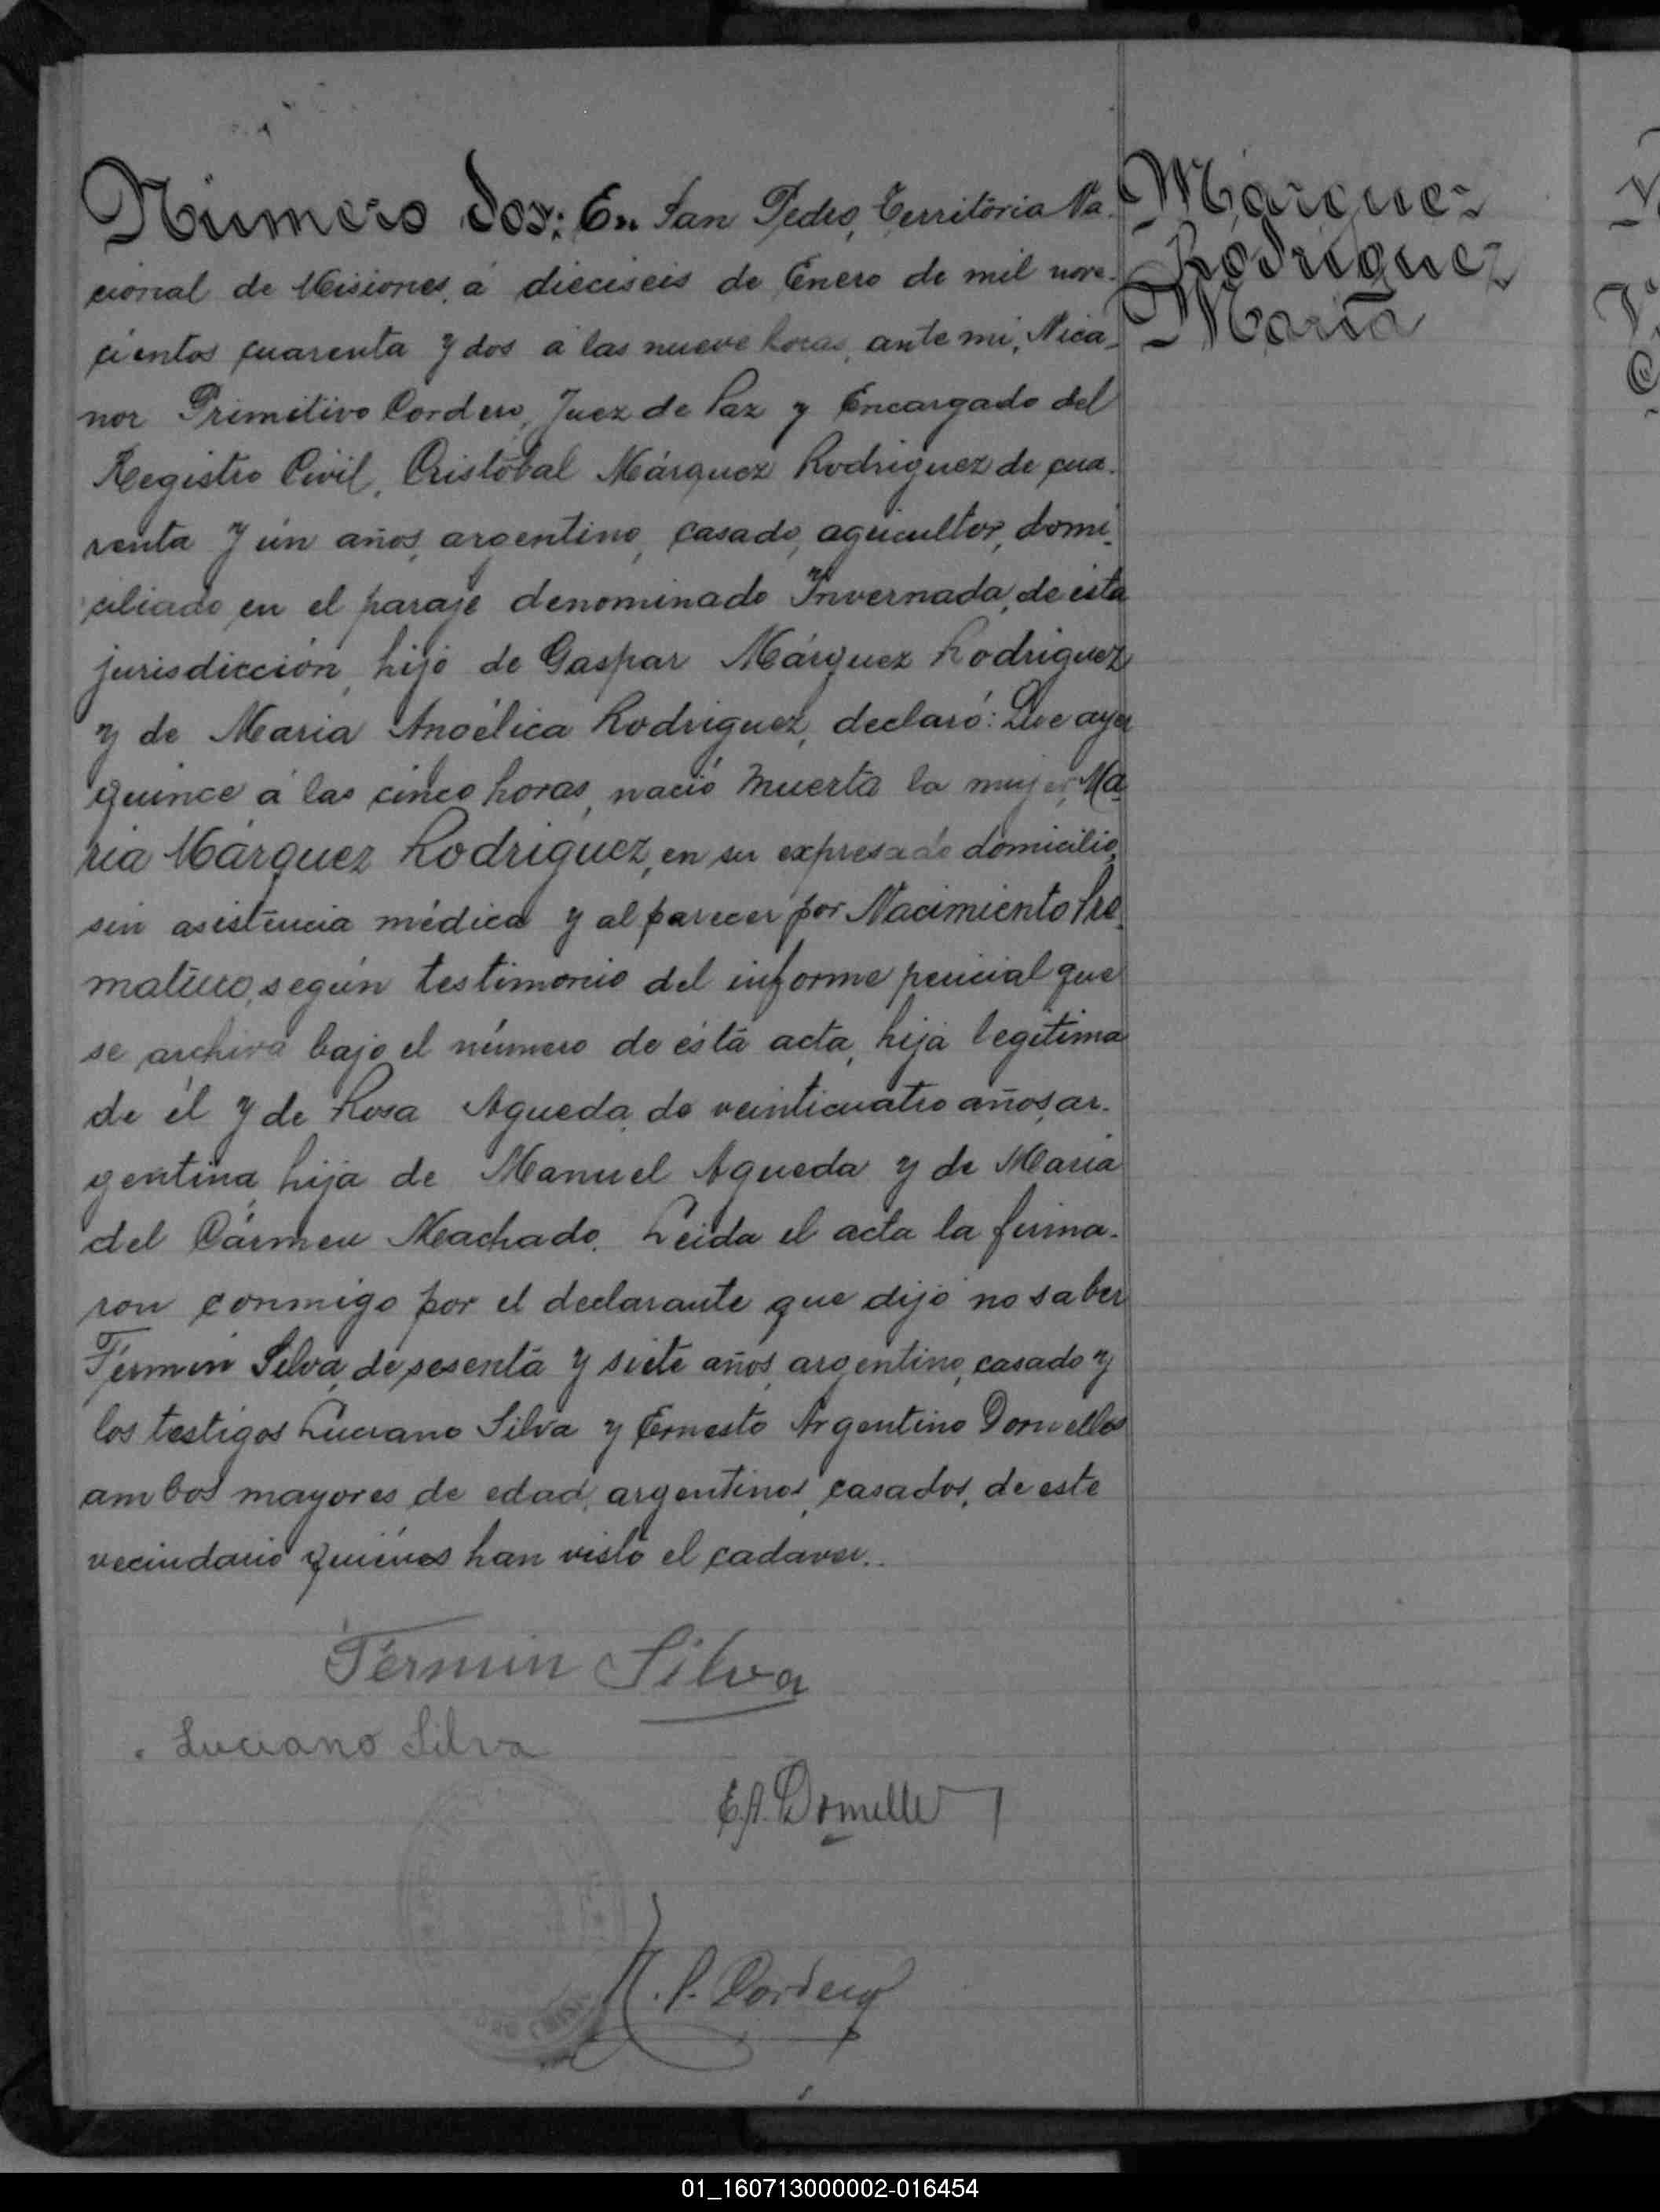 Número dos: En San Pedro, Territorio Na-
cional de Misiones, á dieciseis de Enero de mil nove-
cientos cuarenta y dos a las nueve horas, ante mi, Nica-
nor Primitivo Cordero, Juez de Paz y Encargado del
Registro Civil, Cristóbal Márquez Rodriguez de cua-
renta y ún años, argentino, casado, agricultor, domi-
ciliado en el paraje denominado Invernada, de ésta
jurisdicción, hijo de Gaspar Márquez Rodriguez
y de Maria Angélica Rodriguez, declaró: Que ayer
quince a las cinco horas, nació muerta la mujer, Ma-
ria Márquez Rodriguez, en su expresado domicilio,
sin asistencia médica y al parecer por Nacimiento Pre-
maturo, según testimonio del informe pericial que
se archiva bajo el número de ésta acta, hija legitima
de él y de Rosa Agueda, de veinticuatro años, ar-
gentina, hija de Manuel Agueda y de Maria
del Cármen Machado. Leida el acta la firma-
ron conmigo por el declarante que dijo no saber
Fermin Silva, de sesenta y siete años, argentino, casado y
los testigos Luciano Silva y Ernesto Argentino Dornelles
ambos mayores de edad, argentinos, casados, de este
vecindario quiénes han visto el cadaver.
Marquez
Rodriguez
Maria
Fermin Silva
Luciano Silva
E.A. Dornelles
N. P. Cordero
01_160713000002-016454